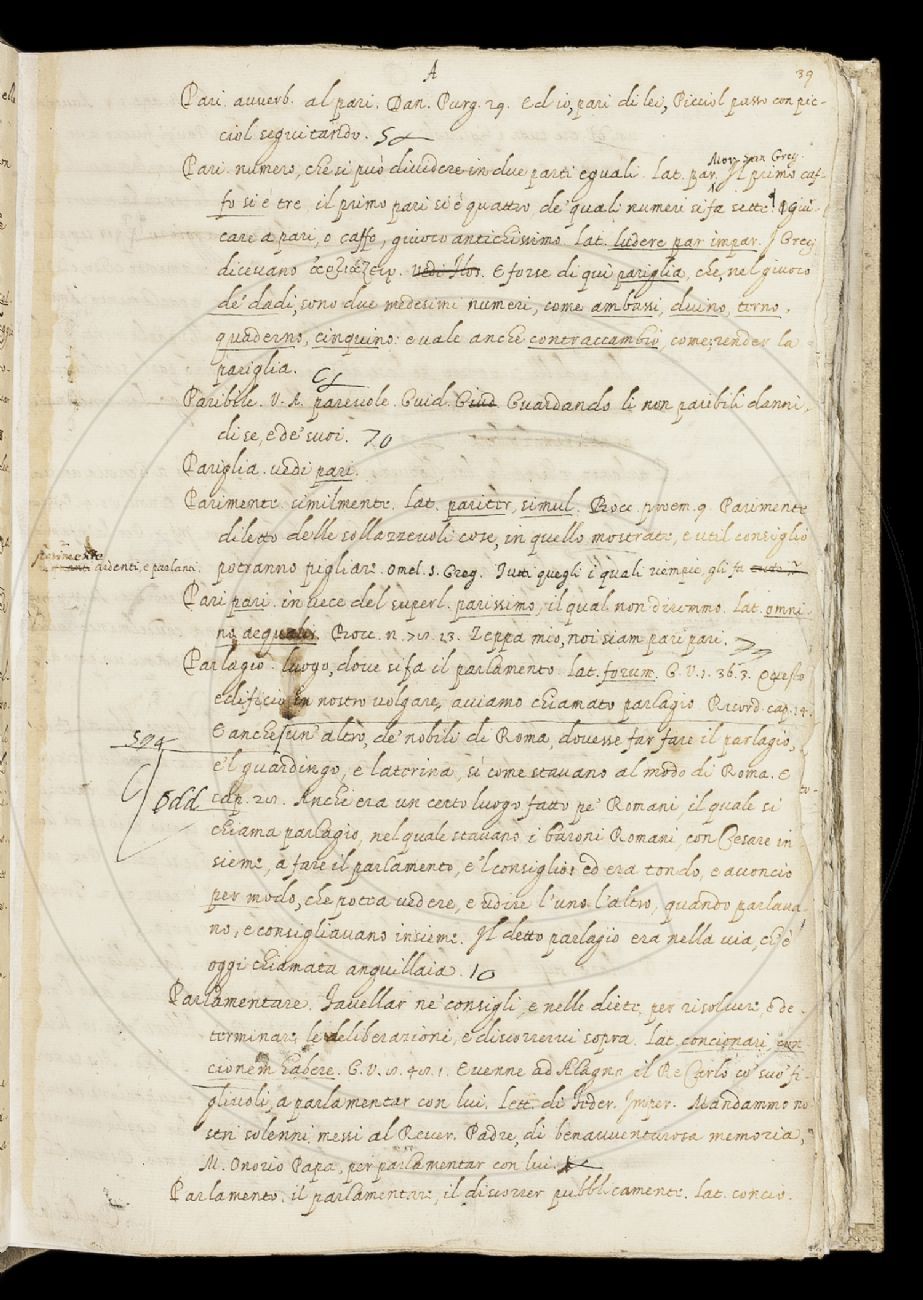 A
39
Pari. avverb. al pari. Dan. Purg. 29. Ed io, pari di lei, Picciol passo con pic-
ciol seguitando.
Mor. San Greg.
Pari. numero, che si può dividere in due parti eguali. Lat. par. Il primo caf-
fo si è tre, il primo pari si è quattro, de' quali numeri si fa sette. Giu-
care a pari, o caffo, giuoco antichissimo. Lat. ludere par impar. I Greci
dicevano vedi E forse di qui pariglia, che, nel giuoco
de' dadi, sono due medesimi numeri, come ambassi, duino, terno,
quaderno, cinquino: e vale anche contraccambio, come, render la
pariglia.
Paribile. V. A. parevole. Guid. Giud. Guardando li non paribili danni,
di se, e de' suoi. 70
Pariglia. vedi pari.
Parimente. similmente. Lat. pariter, simul. Bocc. proem. 9. Parimente
diletto delle sollazzevoli cose, in quelle mostrate, e util consiglio
parimente
ardenti, e parlanti.
potranno pigliare. Omel. S. Greg. Tutti quegli i quali riempie, gli fa
Pari pari. in vece del superl. parissimo, il qual non diremmo. Lat. omni-
no aequalis. Bocc. n. 13. Zeppa mio, noi siam pari pari. 77
Parlagio. luogo, dove si fa il parlamento. Lat. forum. G. V. 1. 36. 3. Questo
edificio in nostro volgare, avviamo chiamato parlagio. Ricord. cap. 14.
E anche un altro, de' nobili di Roma, dovesse far fare il parlagio,
e 'l guardingo, e laterina, sì come stavano al modo di Roma. E
cap. Anche era un certo luogo fatto pe' Romani, il quale si
chiama parlagio, nel quale stavano i baroni Romani, con Cesare in-
sieme, a fare il parlamento, e 'l consiglio: ed era tondo, e acconcio
per modo, che potea vedere, e udire l'uno l'altro, quando parlava-
no, e consigliavano insieme. Il detto parlagio era nella via, ch'è
oggi chiamata anguillaia. 10
Parlamentare. Favellar ne' consigli, e nelle diete, per risolvere, e de-
terminare le deliberazioni, e discorrervi sopra. Lat. concionari, con-
cionem habere. G. V. E venne ad Alagna il Re Carlo co' suo' fi-
gliuoli, a parlamentar con lui. Lett. di Feder. Imper. Mandammo no-
stri solenni messi al Rever. Padre, di benavventurosa memoria,
M. Onorio Papa, per parlamentar con lui.
Parlamento. il parlamentare, il discorrer pubblicamente. Lat. concio.